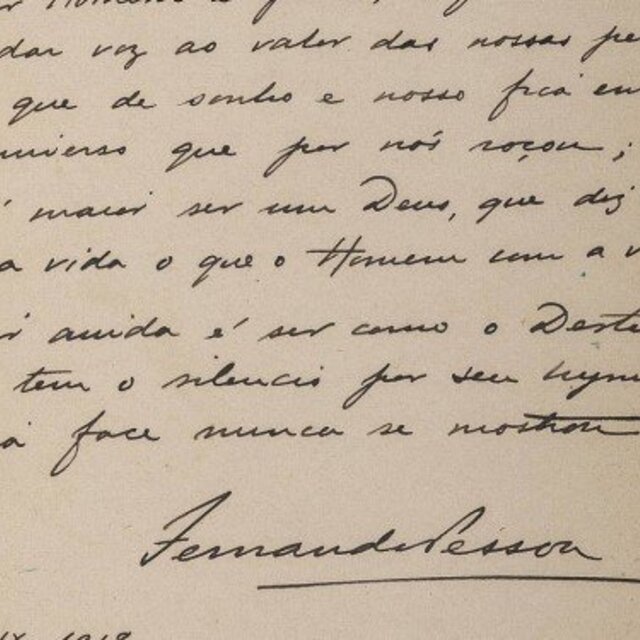 dar voz ao valor das nossas pe
que de sonho e nosso fica em
universo que por nós roçou;
maior ser um Deus, que diz
a vida o que o Homem com a v
r ainda é ser como o Desti
tem o silencio por seu hymn
a face nunca se mostrou
Fernando Pessoa
1918